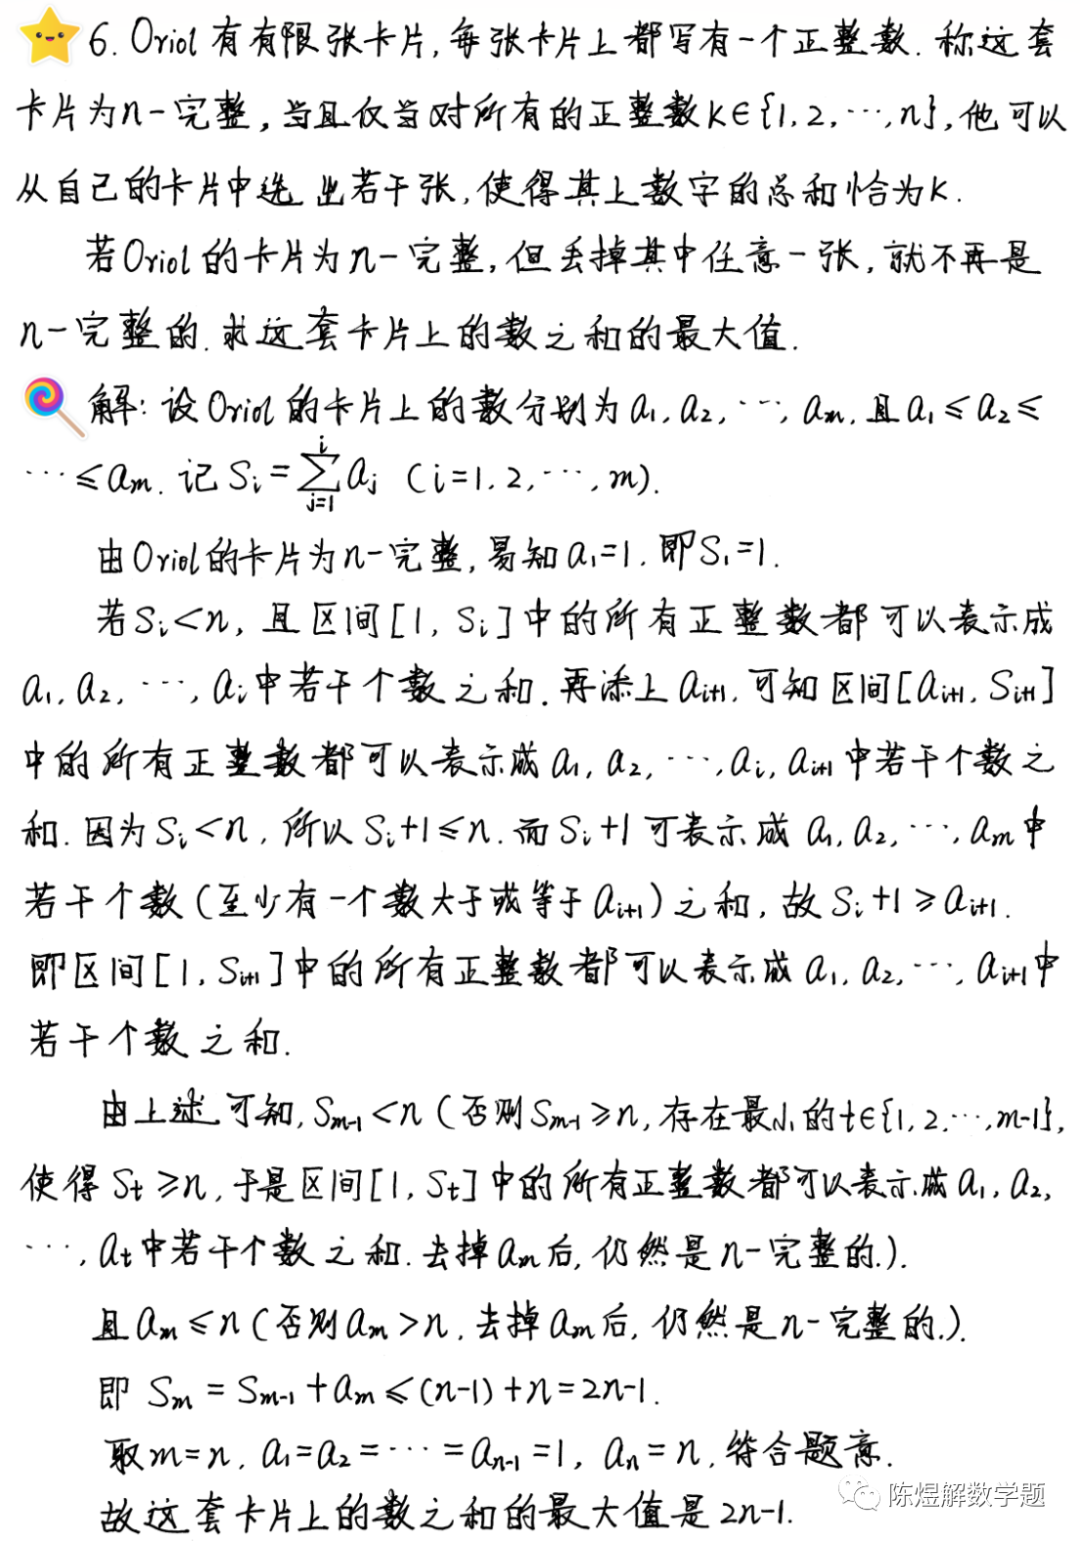 6. Oriol有有限张卡片,每张卡片上都写有一个正整数.称这套
卡片为n-完整,当且仅当对所有的正整数k∈{1,2,…,n},他可以
从自己的卡片中选出若干张,使得其上数字的总和恰为k.
若Oriol的卡片为n-完整,但丢掉其中任意一张,就不再是
n-完整的.求这套卡片上的数之和的最大值.
解:设Oriol的卡片上的数分别为a₁,a₂,…,aₘ,且a₁≤a₂≤
…≤aₘ.记Sᵢ=∑ᵢⱼ₌₁aⱼ (i=1,2,…,m).
由Oriol的卡片为n-完整,易知a₁=1.即S₁=1.
若Sᵢ<n,且区间[1,Sᵢ]中的所有正整数都可以表示成
a₁,a₂,…,aᵢ中若干个数之和.再添上aᵢ₊₁,可知区间[aᵢ₊₁,Sᵢ₊₁]
中的所有正整数都可以表示成a₁,a₂,…,aᵢ,aᵢ₊₁中若干个数之
和.因为Sᵢ<n,所以Sᵢ+1≤n.而Sᵢ+1可表示成a₁,a₂,…,aₘ中
若干个数(至少有一个数大于或等于aᵢ₊₁)之和,故Sᵢ+1≥aᵢ₊₁.
即区间[1,Sᵢ₊₁]中的所有正整数都可以表示成a₁,a₂,…,aᵢ₊₁中
若干个数之和.
由上述可知,Sₘ₋₁<n(否则Sₘ₋₁≥n,存在最小的t∈{1,2,…,m-1},
使得Sₜ≥n,于是区间[1,Sₜ]中的所有正整数都可以表示成a₁,a₂,
…,aₜ中若干个数之和.去掉aₘ后,仍然是n-完整的.).
且aₘ≤n(否则aₘ>n,去掉aₘ后,仍然是n-完整的.).
即Sₘ=Sₘ₋₁+aₘ≤(n-1)+n=2n-1.
取m=n,a₁=a₂=…=aₙ₋₁=1,aₙ=n,符合题意.
故这套卡片上的数之和的最大值是2n-1.
陈煜解数学题